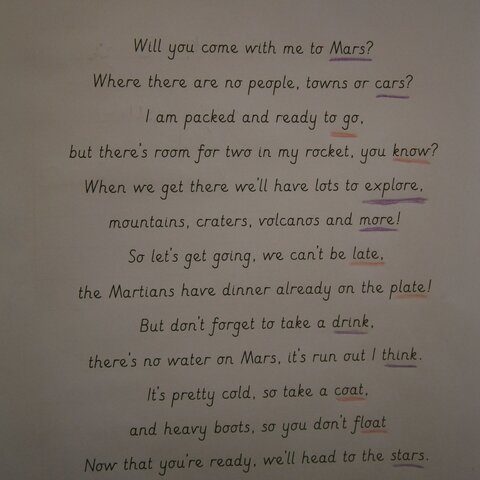 Will you come with me to Mars?
Where there are no people, towns or cars?
I am packed and ready to go,
but there's room for two in my rocket, you know?
When we get there we'll have lots to explore,
mountains, craters, volcanos and more!
So let's get going, we can't be late,
the Martians have dinner already on the plate!
But don't forget to take a drink,
there's no water on Mars, it's run out I think.
It's pretty cold, so take a coat,
and heavy boots, so you don't float
Now that you're ready, we'll head to the stars.